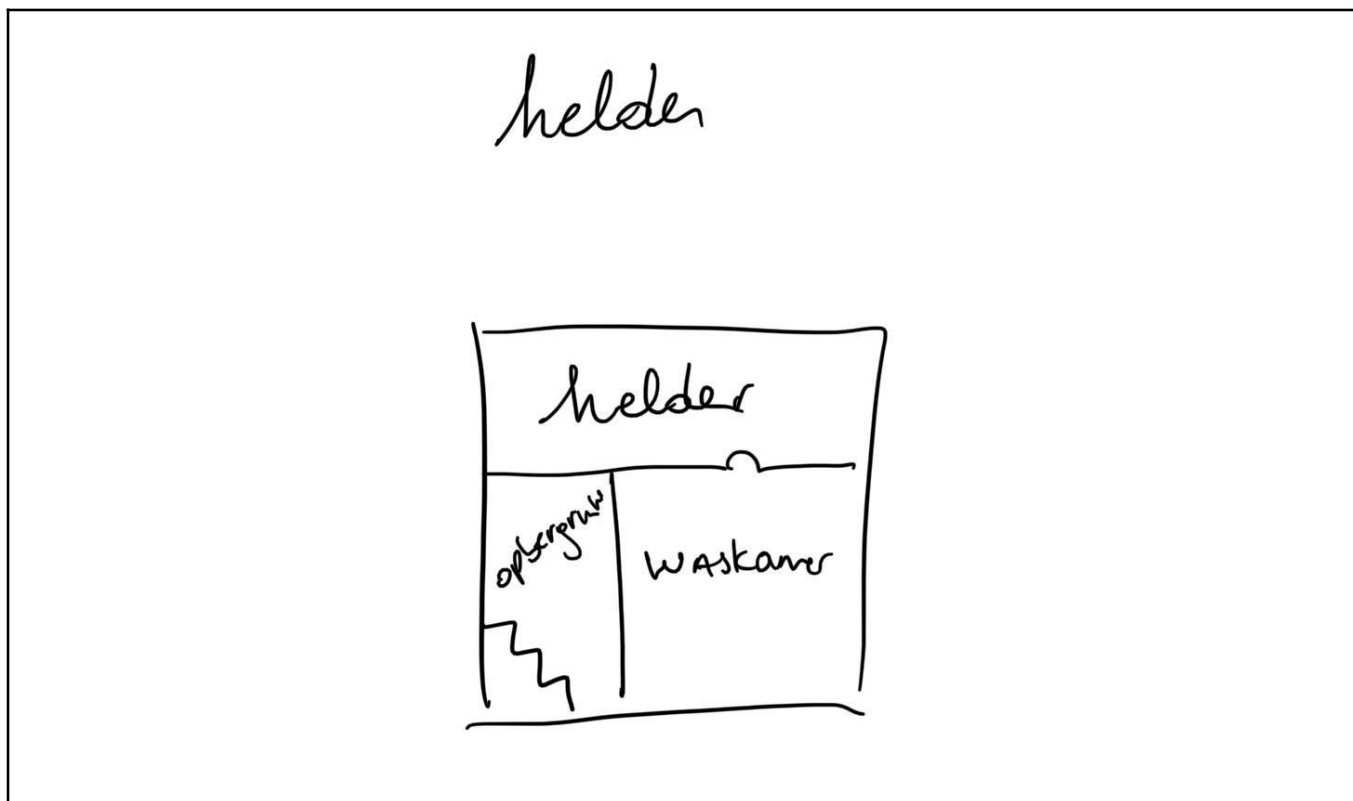 helder
helder
opbergruw
WAskamer